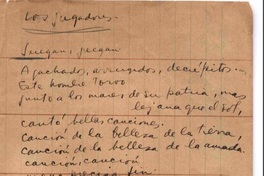 Los jugadores.
Juegan, juegan
Agachados, arrugados, decrépitos...
Este hombre torvo
junto a los mares, de su patria, mas
lejana que el sol,
cantó bellas canciones.
Canción de la belleza de la tierra,
canción de la belleza de la amada.
canción, canción
fin.